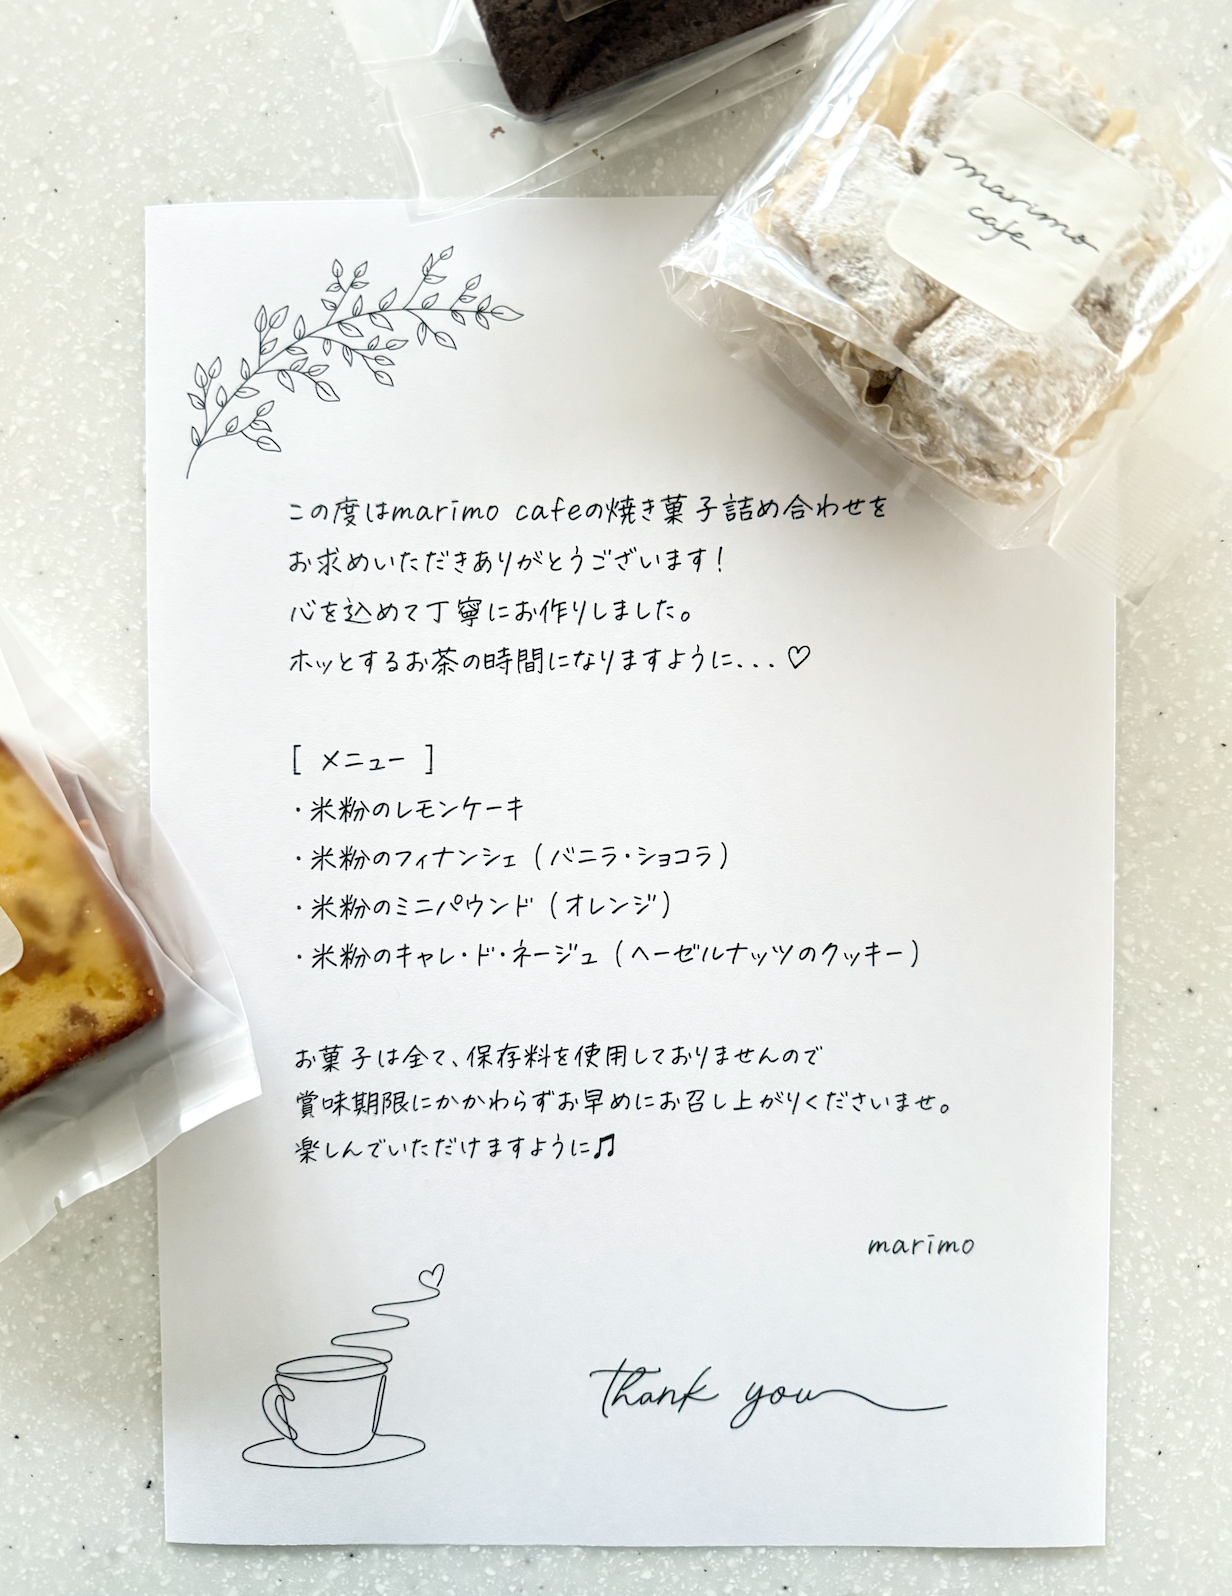 marimo
cafe
この度はmarimo cafeの焼き菓子詰め合わせを
お求めいただきありがとうございます！
心を込めて丁寧にお作りしました。
ホッとするお茶の時間になりますように...♡
[ メニュー ]
・米粉のレモンケーキ
・米粉のフィナンシェ（バニラ・ショコラ）
・米粉のミニパウンド（オレンジ）
・米粉のキャレ・ド・ネージュ（ヘーゼルナッツのクッキー）
お菓子は全て、保存料を使用しておりませんので
賞味期限にかかわらずお早めにお召し上がりくださいませ。
楽しんでいただけますように♫
marimo
thank you